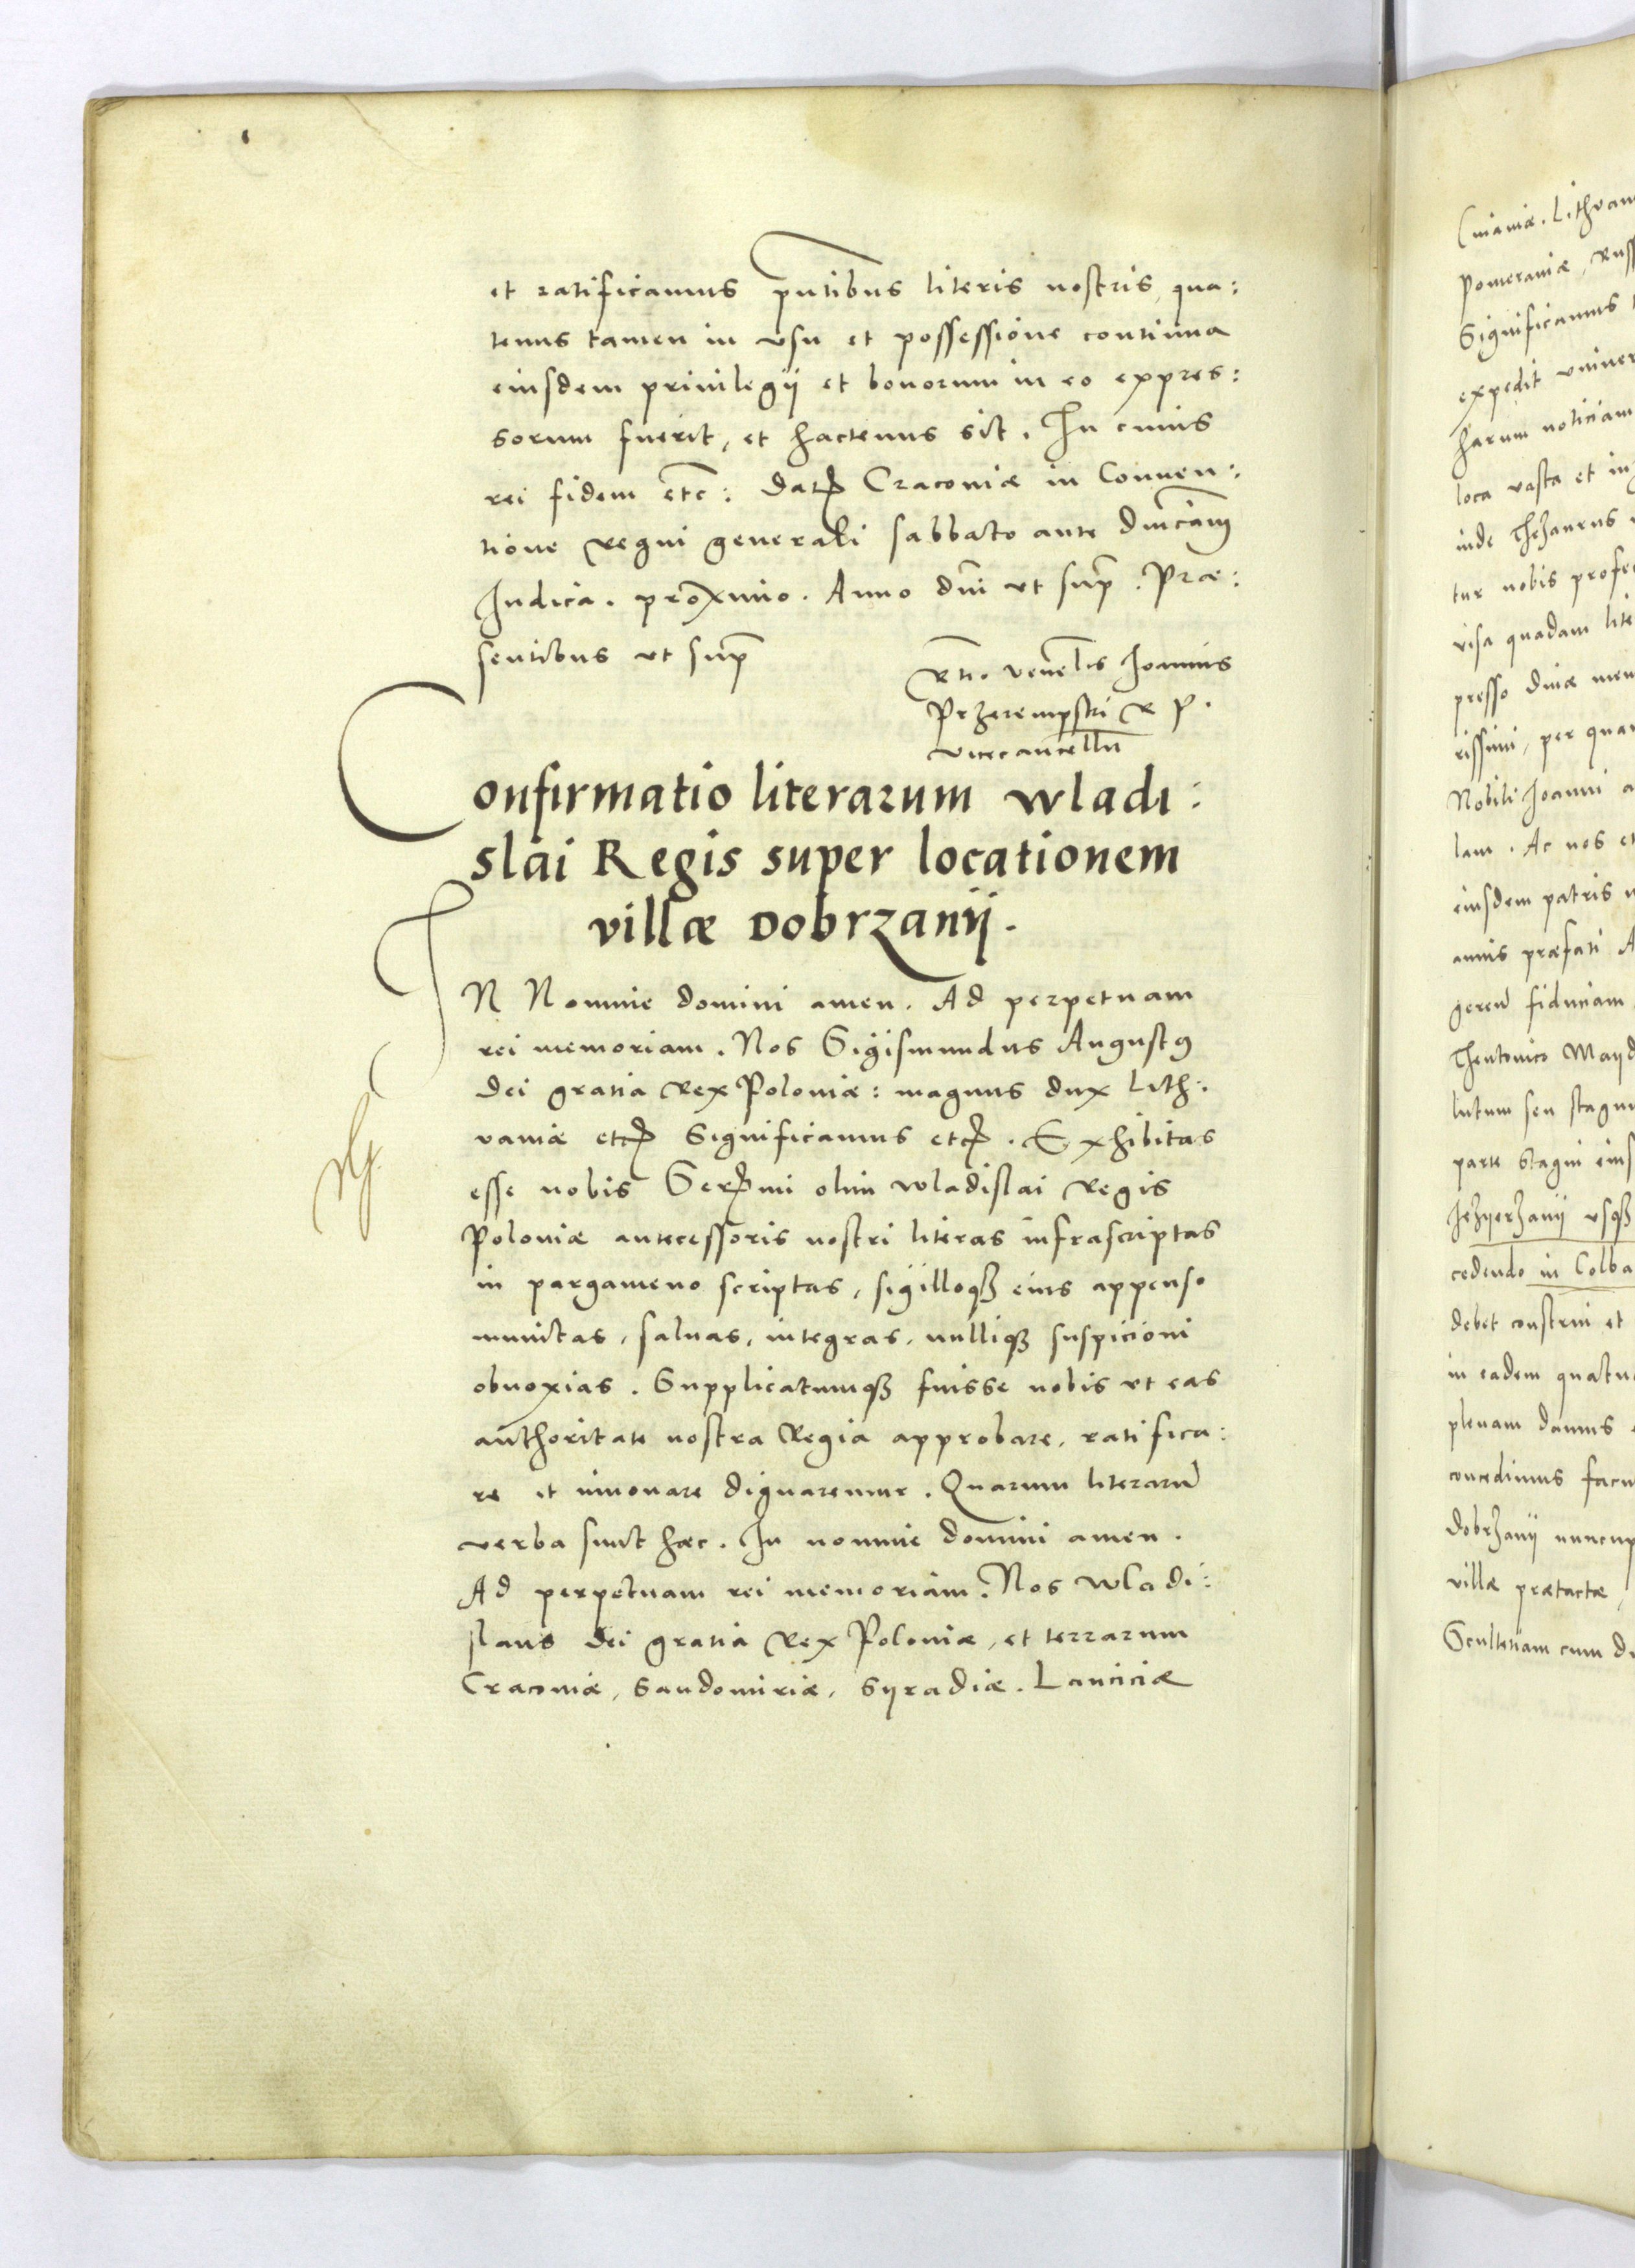 et ratificamus pñtibus literis nostris, qua:
tenus tamen in vsu et possessione continua
eiusdem priuilegij et bonorum in eo expres:
sorum fuerit, et hactenus sit. In cuius
rei fidem etc: Dat Cracoviæ in Conuen:
tione Regni generali sabbato ante Dnicam
Iudica. proximo. Anno dni vt sup. Præ:
sentibus vt sup
Rtio. venelis Ioannis
Przerempski R P.
vicecancellii
Confirmatio literarum Wladi:
slai Regis super locationem
villæ Dobrzanij.
IN Nomine domini amen. Ad perpetuam
rei memoriam. Nos Sigismundus August9
Dei gratia Rex Poloniæ: magnus dux Lith:
vaniæ etc Significamus etc. Exhibitas
esse nobis Sermi olim Wladislai Regis
Poloniæ antecessoris nostri literas infrascriptas
in pargameno scriptas, sigilloq3 eius appenso
munitas, saluas, integras, nulliq3 suspicioni
obnoxias. Supplicatumq3 fuisse nobis vt eas
authoritate nostra Regia approbare, ratifica:
re et innouare dignaremur. Quarum literarū
verba sunt hæc. In nomine domini amen.
Ad perpetuam rei memoriam. Nos Wladi:
slaus Dei gratia Rex Poloniæ, et terrarum
Cracoviæ, Sandomiriæ, Syradiæ. Lanciciæ
Cuiaviæ. Lithvan
Pomeraniæ, Russ
Significamus
expedit vniver
harum noticiam
loca vasta et in
inde Thezaurus
tur nobis profe
visa quadam lite
presso diuæ mem
rissimi, per quam
Nobili Ioanni a
lam. Ac nos et
eiusdem patris
annis præfati A
gerens fiduciam
Theutonico Mayd
lutum seu stagnu
parte Stagni eius
Jezyerzany vsq3
cedendo in Colba
debet construi et
in eadem quatu
plenam damus
concedimus facu
Dobrzanij nuncup
villæ prætactæ,
Scultetiam cum d